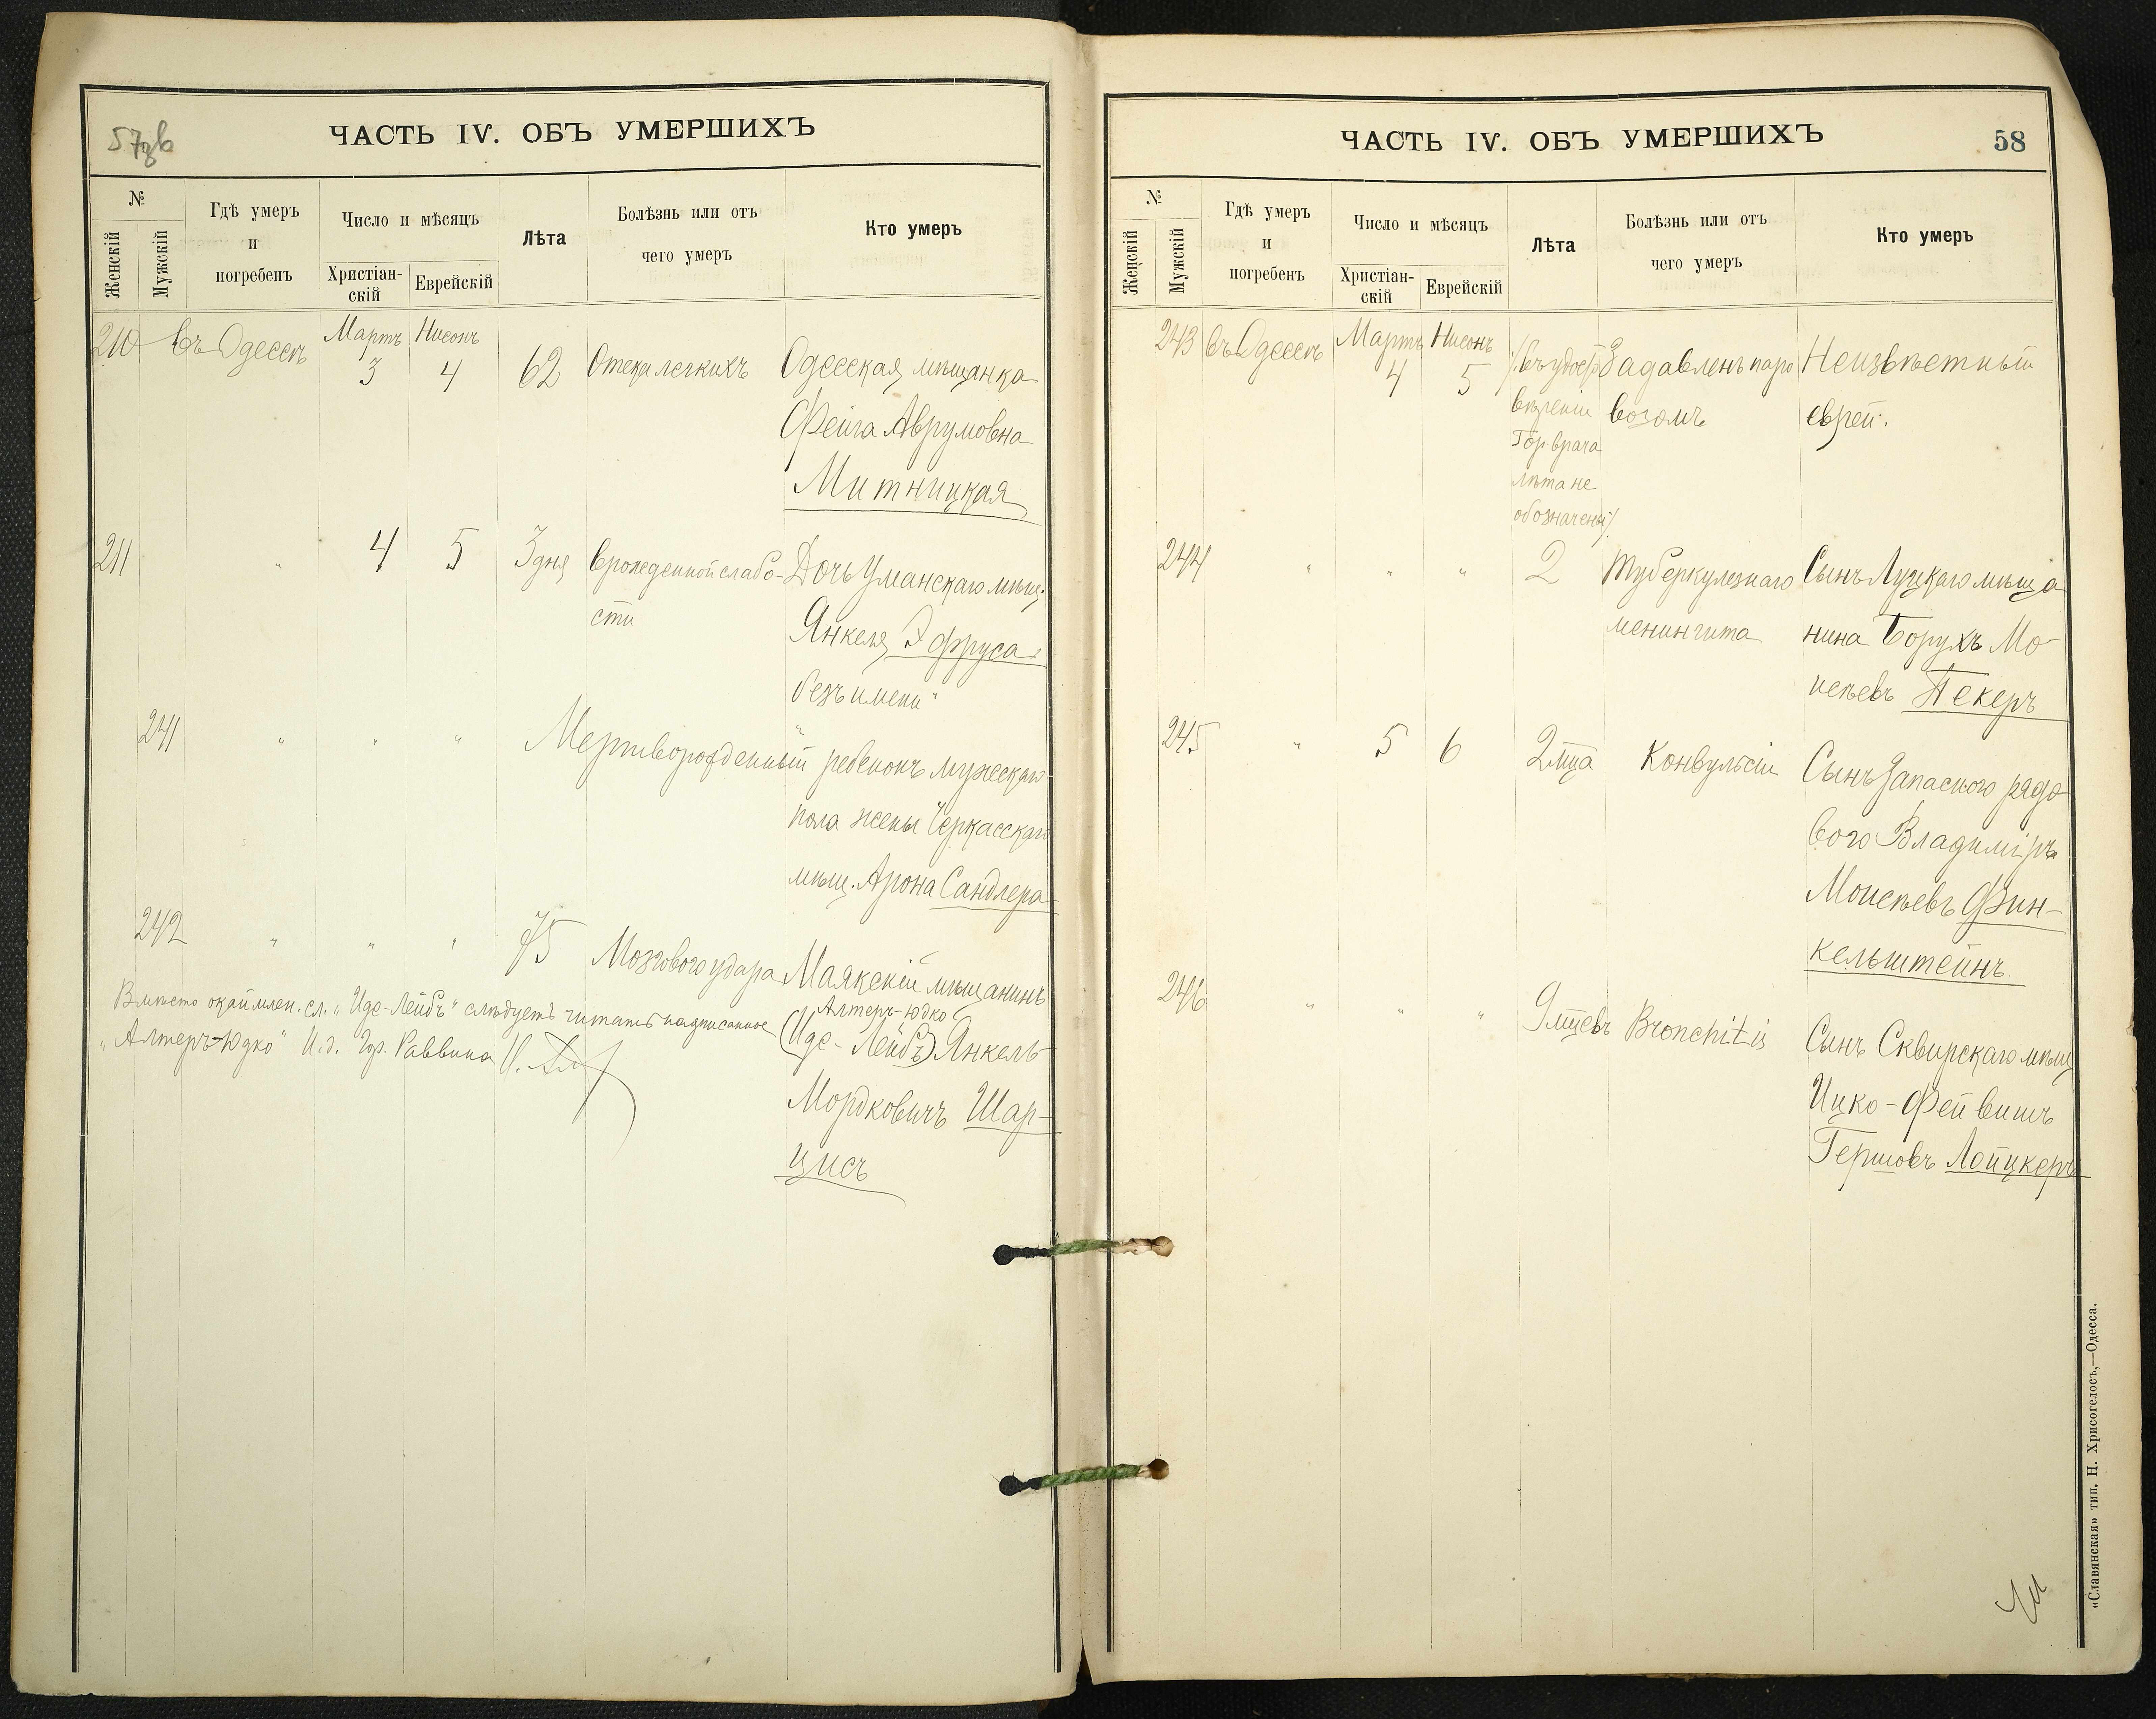 57об
ЧАСТЬ IV. ОБЪ УМЕРШИХЪ
№
Женскій
Мужскій
Гдѣ умеръ
и
погребенъ
Число и мѣсяцъ
Христіан-
скій
Еврейскій
Лѣта
Болѣзнь или отъ
чего умеръ
Кто умеръ
210 въ Одессѣ Мартъ Нисонъ
3 4 62 Отека легкихъ Одесская мѣщанка
Фейга Аврумовна
Митницкая
211 " 4 5 3 дня врожденной слабо- Дочь Уманскаго мѣщ.
сти Янкеля Эфруса
"безъ имени"
241 " " " Мертворожденный ребенокъ мужескаго
пола жены Черкасскаго
мѣщ. Арона Сандлера
242 " " " 75 Мозгового удара Маякскій мѣщанинъ
Алтеръ-Юдко
(Иде-Лейбъ) Янкель-
Мордковичъ Шар-
цисъ
Вмѣсто окаймлен. сл. „Иде-Лейбъ" слѣдуетъ читать надписанное
„Алтеръ-Юдко" И.д. Гор. Раввина
ЧАСТЬ IV. ОБЪ УМЕРШИХЪ
58
№
Женскій
Мужскій
Гдѣ умеръ
и
погребенъ
Число и мѣсяцъ
Христіан-
скій
Еврейскій
Лѣта
Болѣзнь или отъ
чего умеръ
Кто умеръ
243 въ Одессѣ Мартъ Нисонъ
4 5 /:въ удосто Задавленъ паро Неизвѣстный
вѣреніи возомъ еврей.
Гор. врача
лѣта не
обозначены:/
244 " " " 2 Туберкулезнаго Сынъ Луцкаго мѣща
менингита нина Борухъ Мо-
исеевъ Пекеръ
245 " 5 6 2 мца Конвульсіи Сынъ запаснаго рядо
вого Владиміръ
Моисеевъ Фин-
кельштейнъ
246 " " " 9 мцевъ Bronchitis Сынъ Сквирскаго мѣщ
Ицко-Фейвишъ
Гершовъ Лойцкеръ
«Славянская» тип. Н. Хрисогелосъ,—Одесса.